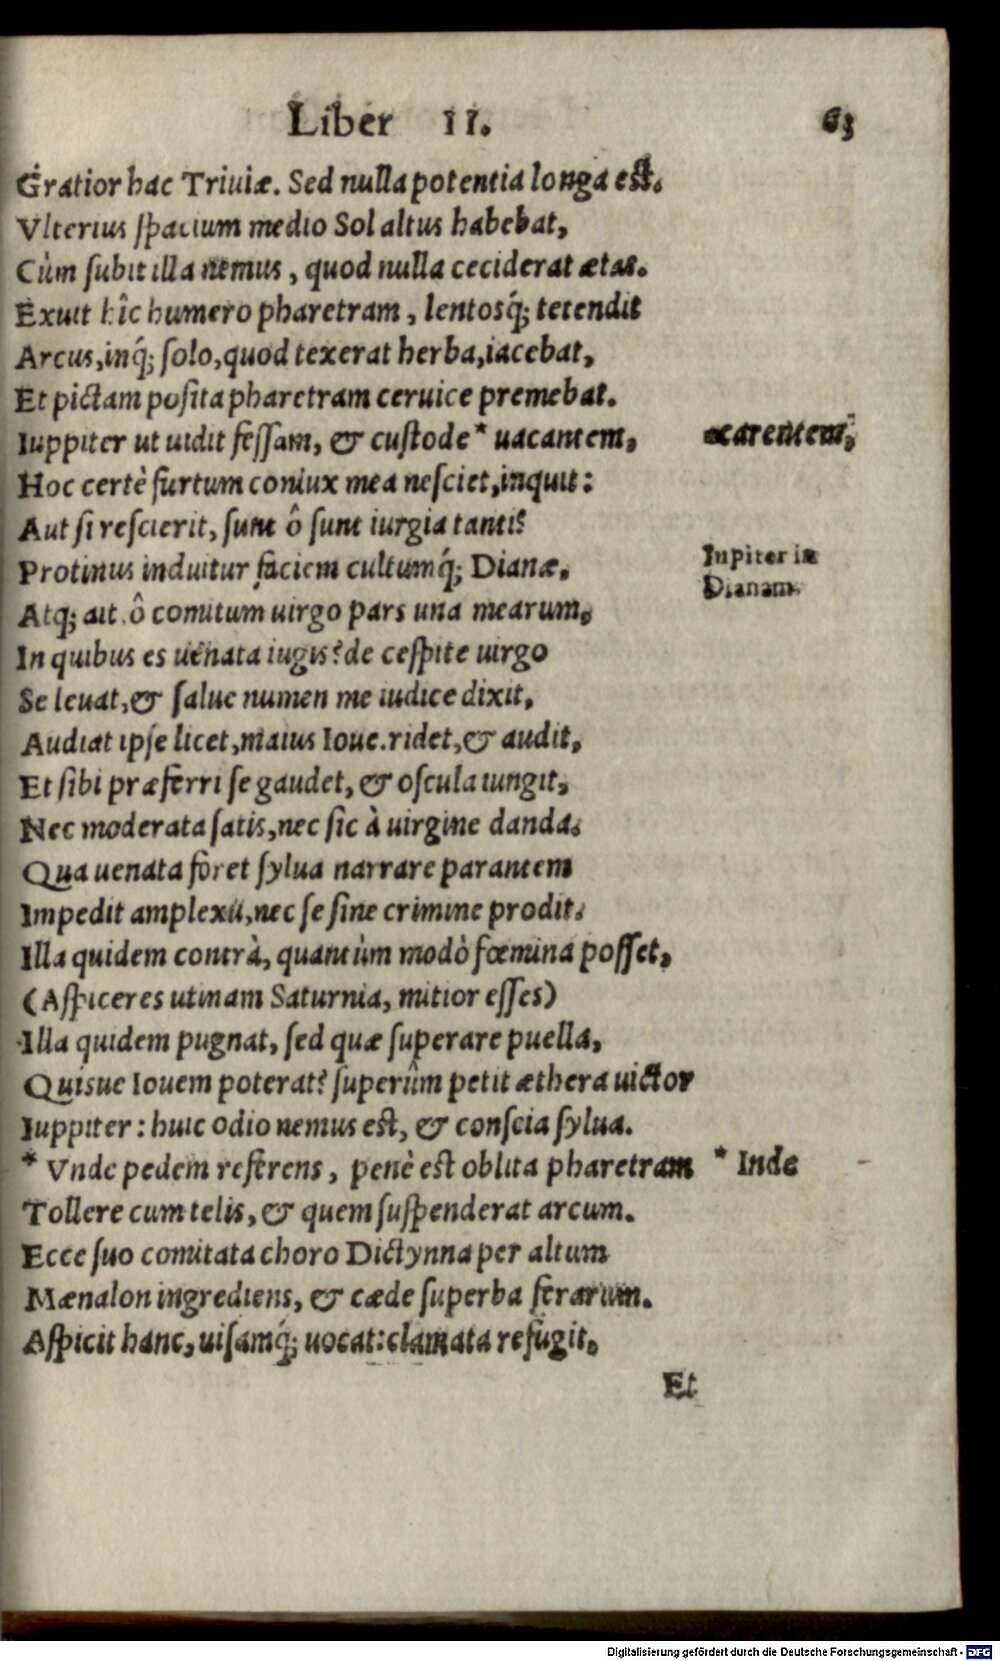 Liber II. 63
Gratior hac Triuiæ. Sed nulla potentia longa est.
Vlterius spacium medio Sol altus habebat,
Cùm subit illa nemus, quod nulla ceciderat ætas.
Exuit hîc humero pharetram, lentosq́; tetendit
Arcus, inq́; solo, quod texerat herba, iacebat,
Et pictam posita pharetram ceruice premebat.
Iuppiter ut uidit fessam, & custode * uacantem,
carentem,
Hoc certè furtum coniux mea nesciet, inquit:
Aut si rescierit, sunt ô sunt iurgia tanti?
Protinus induitur faciem cultumq́; Dianæ.
Iupiter in
Dianam.
Atq; ait. ô comitum uirgo pars una mearum,
In quibus es uenata iugis? de cespite uirgo
Se leuat, & salue numen me iudice dixit,
Audiat ipse licet, maius Ioue. ridet, & audit,
Et sibi præferri se gaudet, & oscula iungit,
Nec moderata satis, nec sic à uirgine danda.
Qua uenata foret sylua narrare parantem
Impedit amplexu, nec se sine crimine prodit.
Illa quidem contrà, quantùm modò fœmina posset,
(Aspiceres utinam Saturnia, mitior esses)
Illa quidem pugnat, sed quæ superare puella,
Quisue Iouem poterat? superûm petit æthera uictor
Iuppiter: huic odio nemus est, & conscia sylua.
* Vnde pedem referens, penè est oblita pharetram
* Inde
Tollere cum telis, & quem suspenderat arcum.
Ecce suo comitata choro Dictynna per altum
Mænalon ingrediens, & cæde superba ferarum.
Aspicit hanc, uisamq́; uocat: clamata refugit,
Et
Digitalisierung gefördert durch die Deutsche Forschungsgemeinschaft - DFG